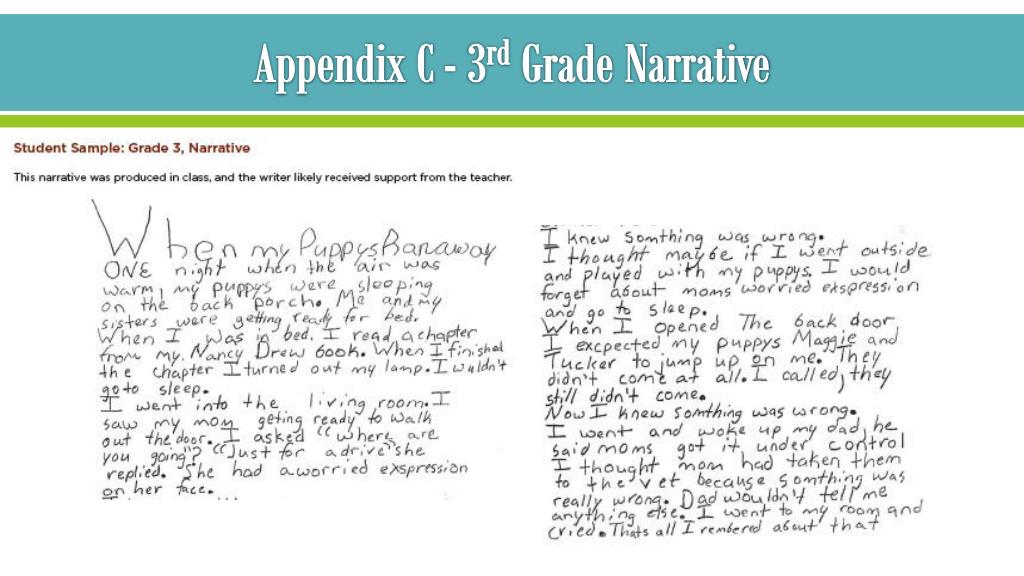 Appendix C - 3rd Grade Narrative
Student Sample: Grade 3, Narrative
This narrative was produced in class, and the writer likely received support from the teacher.
When my Puppys Ranaway
ONE night when the air was
warm, my puppys were sleeping
on the back porch. Me and my
sisters were getting ready for bed.
When I was in bed. I read a chapter
from my Nancy Drew book. When I finished
the chapter I turned out my lamp. I wuldn't
go to sleep.
I went into the living room. I
saw my mom geting ready to walk
out the door. I asked "where are
you going"? "Just for a drive" she
replied. She had a worried exspression
on her face.
I knew somthing was wrong.
I thought maybe if I went outside
and played with my puppys. I would
forget about moms worried exspression
and go to sleep.
When I opened The back door
I excpected my puppys Maggie and
Tucker to jump up on me. They
didn't come at all. I called, they
still didn't come.
Now I knew somthing was wrong.
I went and woke up my dad, he
said moms got it under control
I thought mom had taken them
to the vet because somthing was
really wrong. Dad wouldn't tell me
anything else. I went to my room and
cried. Thats all I rembered about that